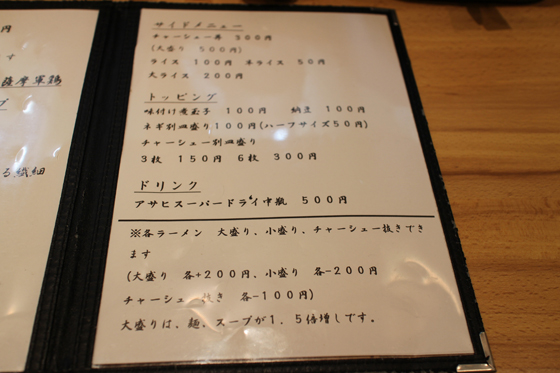 円
す
薩摩軍鶏
プ
る繊細
サイドメニュー
チャーシュー丼　３００円
(大盛り　５００円)
ライス　１００円　半ライス　５０円
大ライス　２００円
トッピング
味付け煮玉子　１００円　納豆　１００円
ネギ別皿盛り１００円(ハーフサイズ５０円)
チャーシュー別皿盛り
３枚　１５０円　６枚　３００円
ドリンク
アサヒスーパードライ中瓶　５００円
※各ラーメン　大盛り、小盛り、チャーシュー抜きでき
ます
(大盛り　各+２００円、小盛り　各−２００円
チャーシュー抜き　各−１００円)
大盛りは、麺、スープが１．５倍増しです。